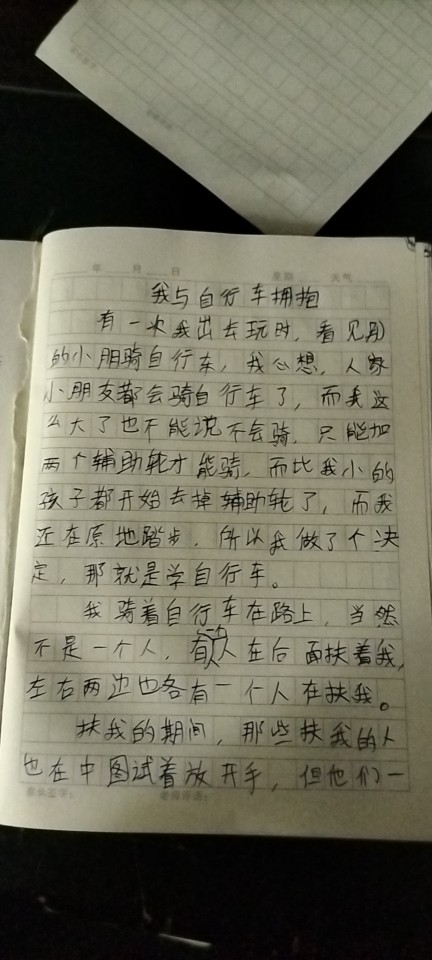 年 月 日 星期 天气
我与自行车拥抱
有一次我出去玩时，看见别
的小朋骑自行车，我心想，人家
小朋友都会骑自行车了，而我这
么大了也不能说不会骑，只能加
两个辅助轮才能骑，而比我小的
孩子都开始去掉辅助轮了，而我
还在原地踏步，所以我做了个决
定，那就是学自行车。
我骑着自行车在路上，当然
不是一个人，有人在后面扶着我，
左右两边也各有一个人在扶我。
扶我的期间，那些扶我的人
也在中图试着放开手，但他们一
家长签字： 老师评语：